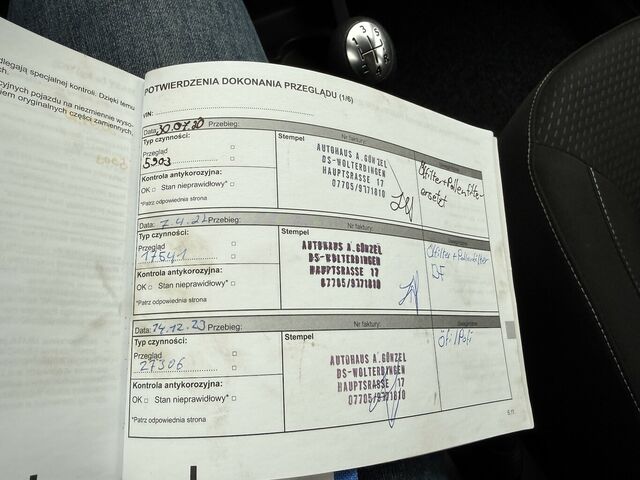 dlegają specjalnej kontroli. Dzięki temu
ch.
cyjnych pojazdu na niezmiennie wyso-
iem oryginalnych części zamiennych.
POTWIERDZENIA DOKONANIA PRZEGLĄDU (1/6)
VIN:
Data: 30.07.20 Przebieg: Nr faktury:
Typ czynności:
Przegląd
5903
Kontrola antykorozyjna:
OK □ Stan nieprawidłowy* □
*Patrz odpowiednia strona
Stempel
AUTOHAUS A.GÜNZEL
DS-WOLTERDINGEN
HAUPTSRASSE 17
07705/9771810
Ölfilter+Pollenfilter
ersetzt
Data: 7.4.21 Przebieg: Nr faktury:
Typ czynności:
Przegląd
17541
Kontrola antykorozyjna:
OK □ Stan nieprawidłowy* □
*Patrz odpowiednia strona
Stempel
AUTOHAUS A.GÜNZEL
DS-WOLTERDINGEN
HAUPTSRASSE 17
07705/9771810
Ölfilter+Pollenfilter
BF
Data: 14.12.23 Przebieg: Nr faktury:
Typ czynności:
Przegląd
27306
Kontrola antykorozyjna:
OK □ Stan nieprawidłowy* □
*Patrz odpowiednia strona
Stempel
AUTOHAUS A.GÜNZEL
DS-WOLTERDINGEN
HAUPTSRASSE 17
07705/9771810
5.11